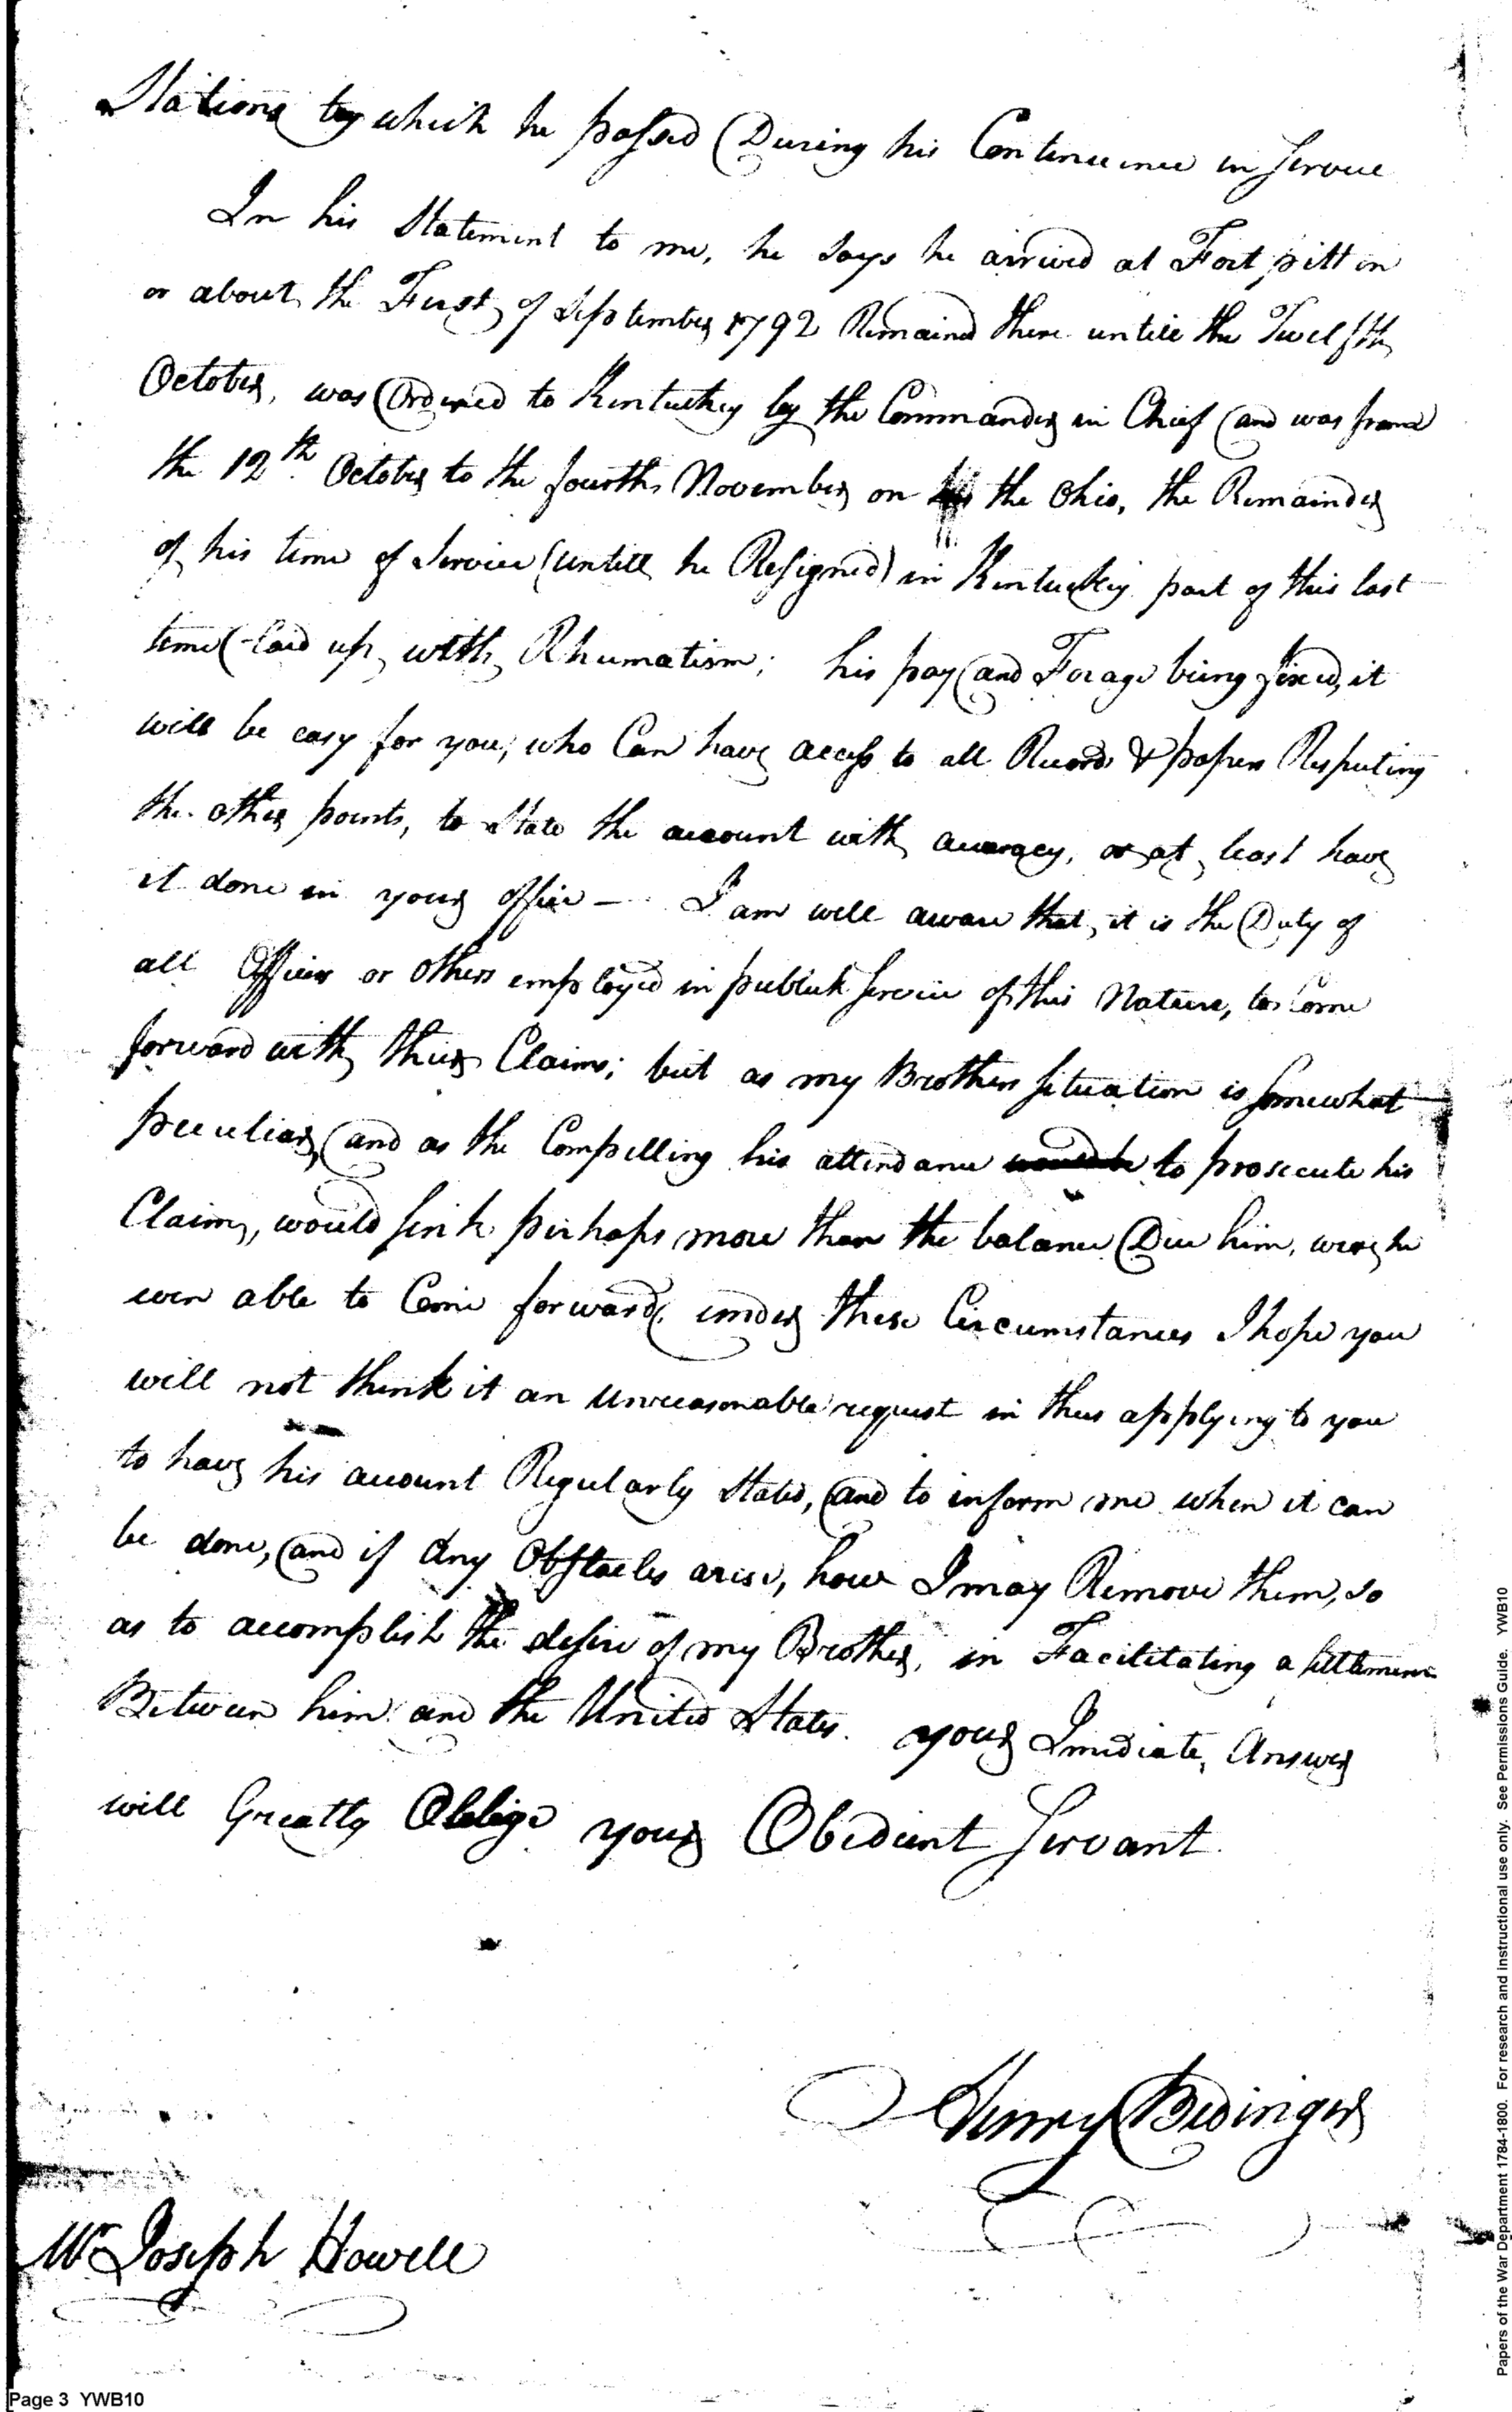 Stations by which he passed During his Continuence in Service
In his Statement to me, he says he arrived at Fort pitt on
or about the First of September 1792 Remained there untill the Twelfth
October, was Ordered to Kentuckey by the Commander in Chief and was from
the 12th October to the fourth November on the Ohio, the Remainder
of his time of Service (untill he Resigned) in Kentuckey part of this last
time Laid up with Rhumatism; his pay and Forage being fixed, it
will be easy for you, who Can have access to all Records & papers Respecting
the other points, to State the account with accuracy, or at least have
it done in your office — I am well aware that it is the Duty of
all Officers or others employed in publick Service of this Nature, to Come
forward with their Claims; but as my Brothers Situation is Somewhat
peculiar, and as the Compelling his attendance would be to prosecute his
Claim, would sink perhaps more than the balance Due him, were he
even able to Come forward, under these Circumstances I hope you
will not think it an unreasonable request in thus applying to you
to have his account Regularly Stated, and to inform me when it can
be done, and if any Obstacles arise, how I may Remove them, so
as to accomplish the desire of my Brother, in Facilitating a Settlement
Between him and the United States. your Imediate Answer
will Greatly Oblige your Obedient Servant
Henry Bedinger
Mr Joseph Howell
Page 3 YWB10
Papers of the War Department 1784-1800. For research and instructional use only. See Permissions Guide. YWB10